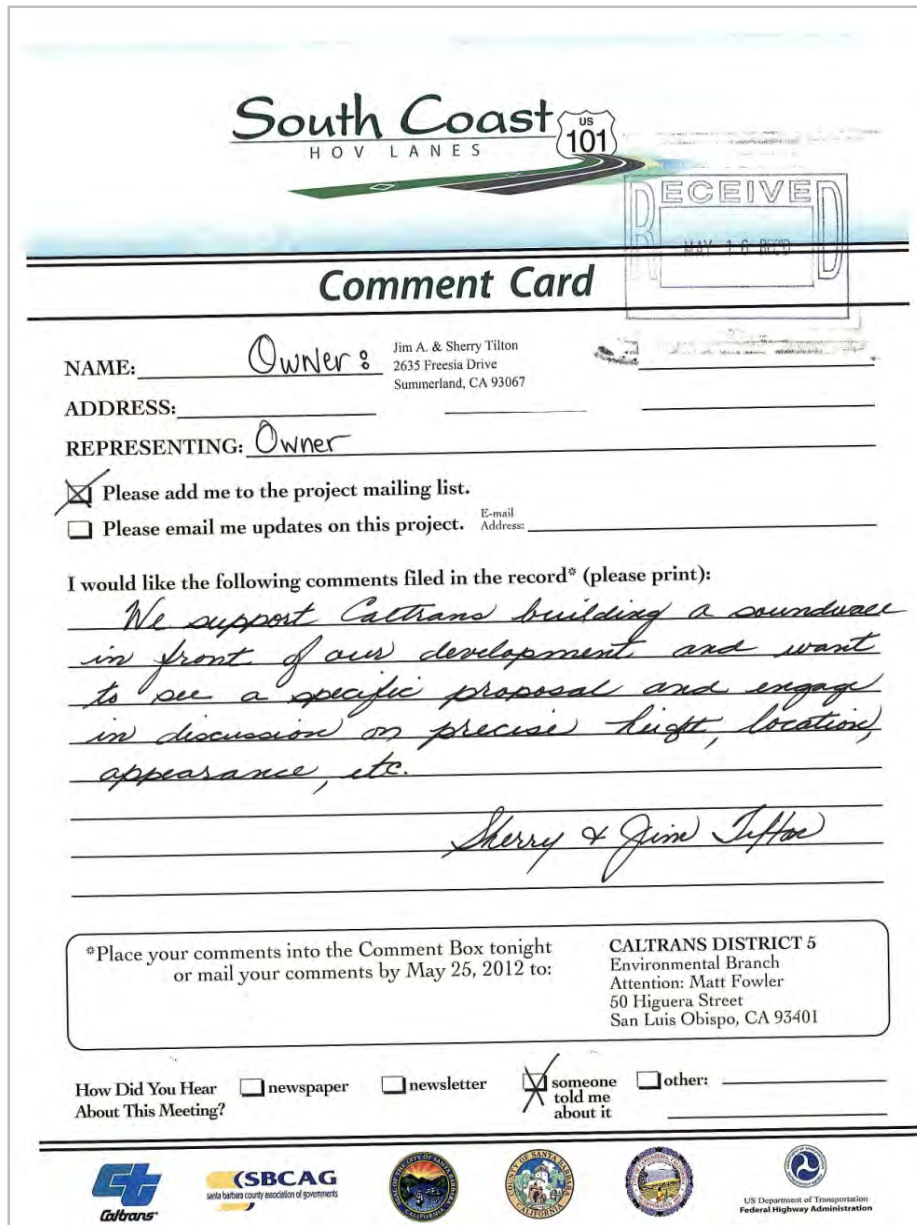 South Coast
US
101
HOV LANES
RECEIVED
MAY 16 REC'D
Comment Card
NAME: Owner:
Jim A. & Sherry Tilton
2635 Freesia Drive
Summerland, CA 93067
ADDRESS:
REPRESENTING: Owner
Please add me to the project mailing list.
Please email me updates on this project. E-mail Address:
I would like the following comments filed in the record* (please print):
We support Caltrans building a soundwall
in front of our development and want
to see a specific proposal and engage
in discussion on precise hight, location,
appearance, etc.
Sherry & Jim Tilton
*Place your comments into the Comment Box tonight
or mail your comments by May 25, 2012 to:
CALTRANS DISTRICT 5
Environmental Branch
Attention: Matt Fowler
50 Higuera Street
San Luis Obispo, CA 93401
How Did You Hear
About This Meeting?
newspaper
newsletter
someone
told me
about it
other:
Caltrans
SBCAG
santa barbara county association of governments
COUNTY OF SANTA BARBARA
CALIFORNIA
US Department of Transportation
Federal Highway Administration